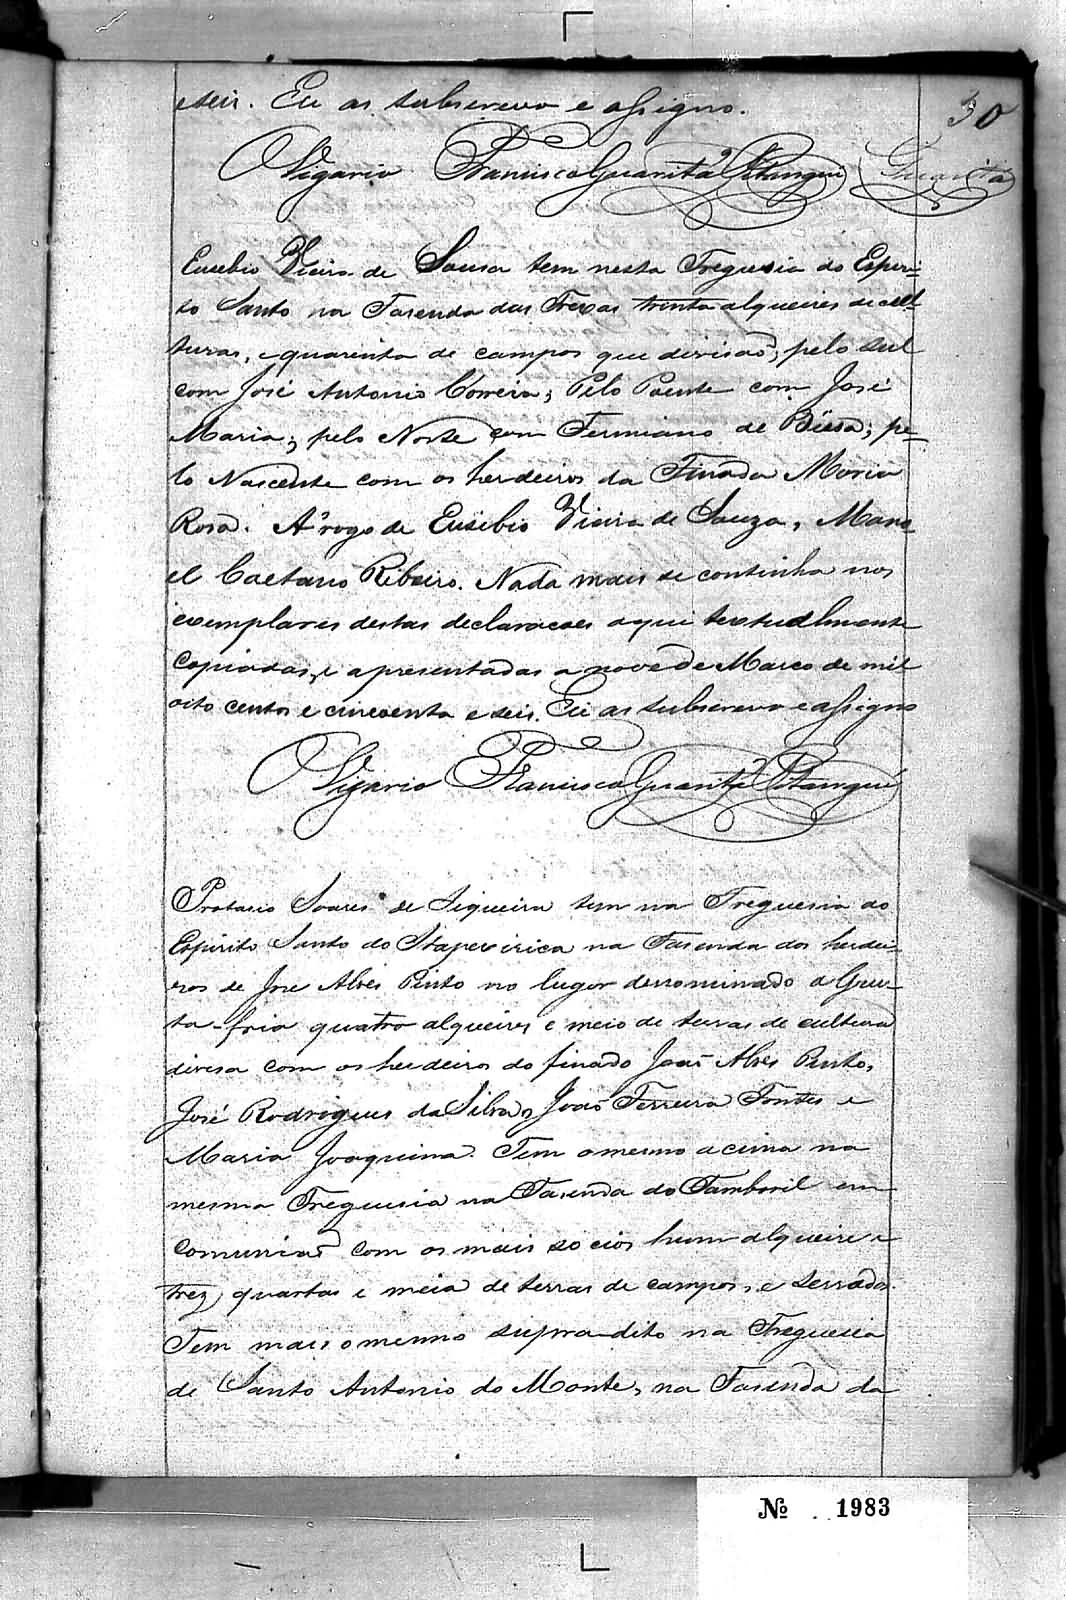 e seis. Eu as subscrevo e assigno.
30
O Vigario Francisco Guaritá Pitangui
Guaritá
Eusebio Vieira de Sousa tem nesta Freguesia do Espiri-
to Santo na Fasenda das Trevas trinta alqueires de cul-
turas, e quarenta de campos que divisaõ; pelo sul
com José Antonio Correia; Pelo Poente com José
Maria; pelo Norte com Fermiano de Bessa; pe-
lo Nascente com os herdeiros da Finada Maria
Rosa. A rogo de Eusebio Vieira de Souza, Mano-
el Caetano Ribeiro. Nada mais se continha nos
exemplares destas declaracoes aqui textualmente
Copiadas, e apresentadas a nove de Marco de mil
oito centos e cincoenta e seis. Eu as subscrevo e assigno
O Vigario Francisco Guaritá Pitangui
Protasio Soares de Siqueira tem na Freguesia do
Espirito Santo do Itapecirica na Fasenda dos herdei-
ros de Jose Alves Pinto no lugar denominado a Gru-
ta-fria quatro alqueires e meio de terras de cultura
divisa com os herdeiros do finado Joaõ Alves Pinto,
José Rodrigues da Silva, Joaõ Ferreira Fontes e
Maria Joaquina. Tem o mesmo acima na
mesma Freguesia na Fasenda do Tamboril em
Comunhaõ com os mais socios hum alqueire e
trez quartas e meia de terras de campos, e serrados.
Tem mais o mesmo supra-dito na Freguesia
de Santo Antonio do Monte, na Fasenda da
Nº 1983